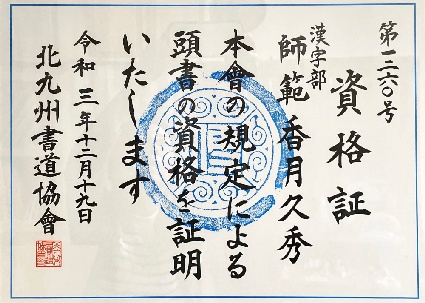 第一三六〇号
資格証
漢字部
師範 香月久秀
本會の規定による
頭書の資格を証明
いたします
令和三年十二月十九日
北九州書道協會